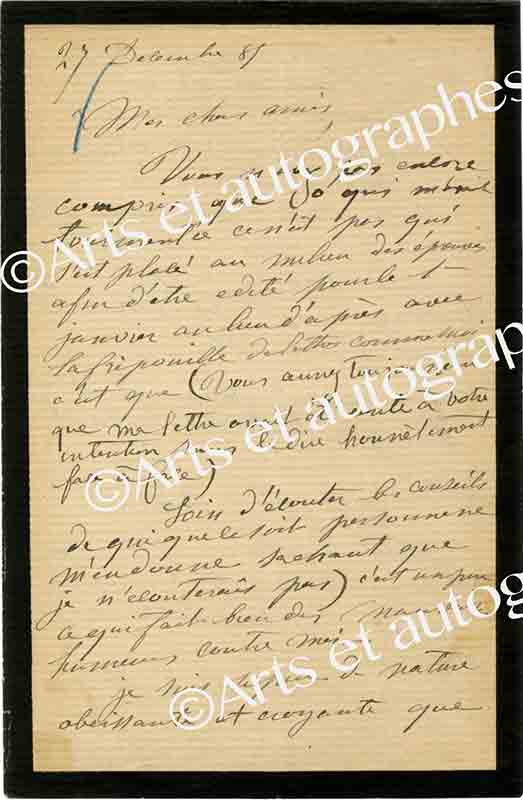 27 Decembre 85
Mes chers amis
Vous n'avez pas encore
compris que ce qui m'avait
tourmentée ce n'est pas qu'il
soit placé au milieu des épreuves
afin d'être edité pour le 1
janvier au lieu d'après avec
la fripouille de lettres comme moi
c'est que (Vous aurez toujours
que ma lettre avait été à votre
intention sans le dire honnêtement
face à face)
Loin d'écouter les conseils
de qui que ce soit personne ne
m'en donne sachant que
je n'écouterais pas) c'est un peu
ce qui fait bien des
humeurs contre moi
je suis de nature
obeissante et croyante que
©Arts et autographes
©Arts et autographes
©Arts et autographes